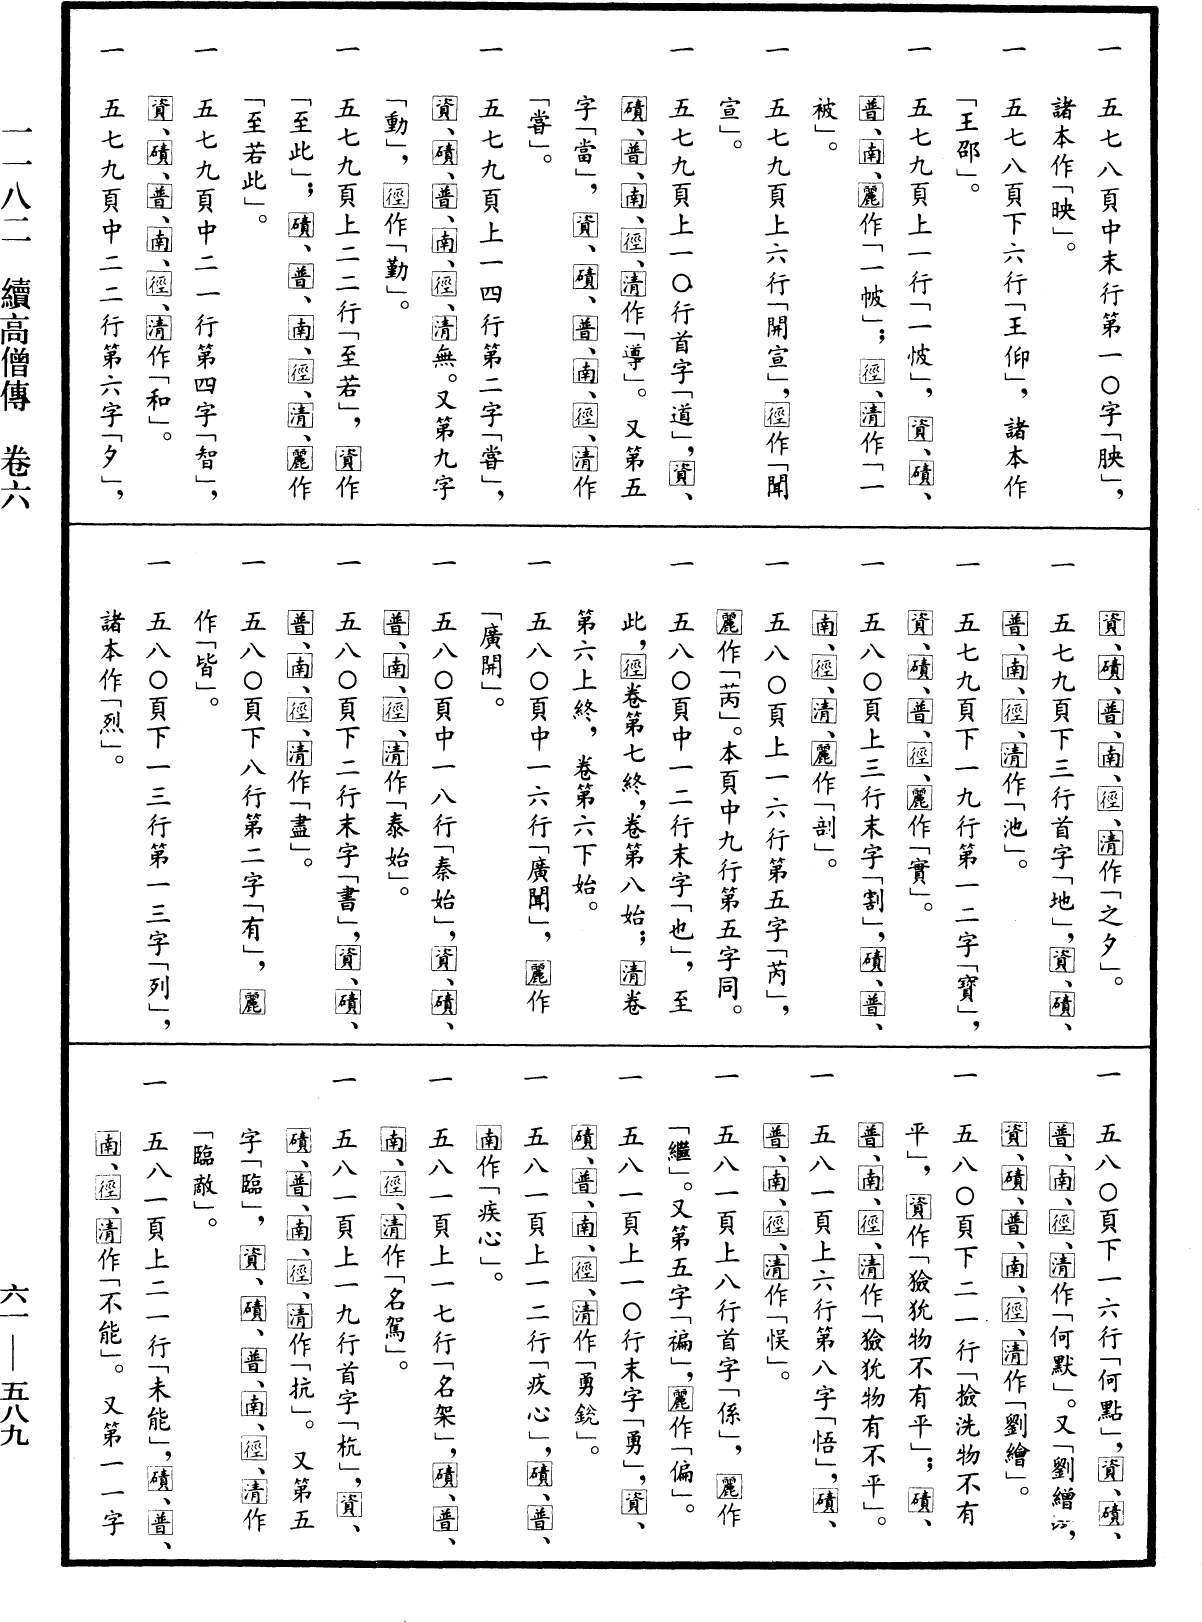 一　五七八頁中末行第一〇字「䀹」，
諸本作「映」。
一　五七八頁下六行「王仰」，諸本作
「王邵」。
一　五七九頁上一行「一怶」，資、磧、
普、南、麗作「一帔」；徑、清作「一
被」。
一　五七九頁上六行「開宣」，徑作「聞
宣」。
一　五七九頁上一〇行首字「道」，資、
磧、普、南、徑、清作「導」。又第五
字「當」，資、磧、普、南、徑、清作
「嘗」。
一　五七九頁上一四行第二字「嘗」，
資、磧、普、南、徑、清無。又第九字
「動」，徑作「勤」。
一　五七九頁上二二行「至若」，資作
「至此」；磧、普、南、徑、清、麗作
「至若此」。
一　五七九頁中二一行第四字「智」，
資、磧、普、南、徑、清作「和」。
一　五七九頁中二二行第六字「夕」，
資、磧、普、南、徑、清作「之夕」。
一　五七九頁下三行首字「地」，資、磧、
普、南、徑、清作「池」。
一　五七九頁下一九行第一二字「寶」，
資、磧、普、徑、麗作「實」。
一　五八〇頁上三行末字「割」，磧、普、
南、徑、清、麗作「剖」。
一　五八〇頁上一六行第五字「芮」，
麗作「苪」。本頁中九行第五字同。
一　五八〇頁中一二行末字「也」，至
此，徑卷第七終，卷第八始；清卷
第六上終，卷第六下始。
一　五八〇頁中一六行「廣聞」，麗作
「廣開」。
一　五八〇頁中一八行「秦始」，資、磧、
普、南、徑、清作「泰始」。
一　五八〇頁下二行末字「書」，資、磧、
普、南、徑、清作「畫」。
一　五八〇頁下八行第二字「有」，麗
作「皆」。
一　五八〇頁下一三行第一三字「列」，
諸本作「烈」。
一　五八〇頁下一六行「何點」，資、磧、
普、南、徑、清作「何默」。又「劉繒」，
資、磧、普、南、徑、清作「劉繪」。
一　五八〇頁下二一行「撿洗物不有
平」，資作「獫狁物不有平」；磧、
普、南、徑、清作「獫狁物有不平」。
一　五八一頁上六行第八字「悟」，磧、
普、南、徑、清作「悮」。
一　五八一頁上八行首字「係」，麗作
「繼」。又第五字「褊」，麗作「偏」。
一　五八一頁上一〇行末字「勇」，資、
磧、普、南、徑、清作「勇銳」。
一　五八一頁上一二行「疚心」，磧、普、
南作「疾心」。
一　五八一頁上一七行「名架」，磧、普、
南、徑、清作「名駕」。
一　五八一頁上一九行首字「杭」，資、
磧、普、南、徑、清作「抗」。又第五
字「臨」，資、磧、普、南、徑、清作
「臨敵」。
一　五八一頁上二一行「未能」，磧、普、
南、徑、清作「不能」。又第一一字
一一八二　續高僧傳　卷六
六一—五八九